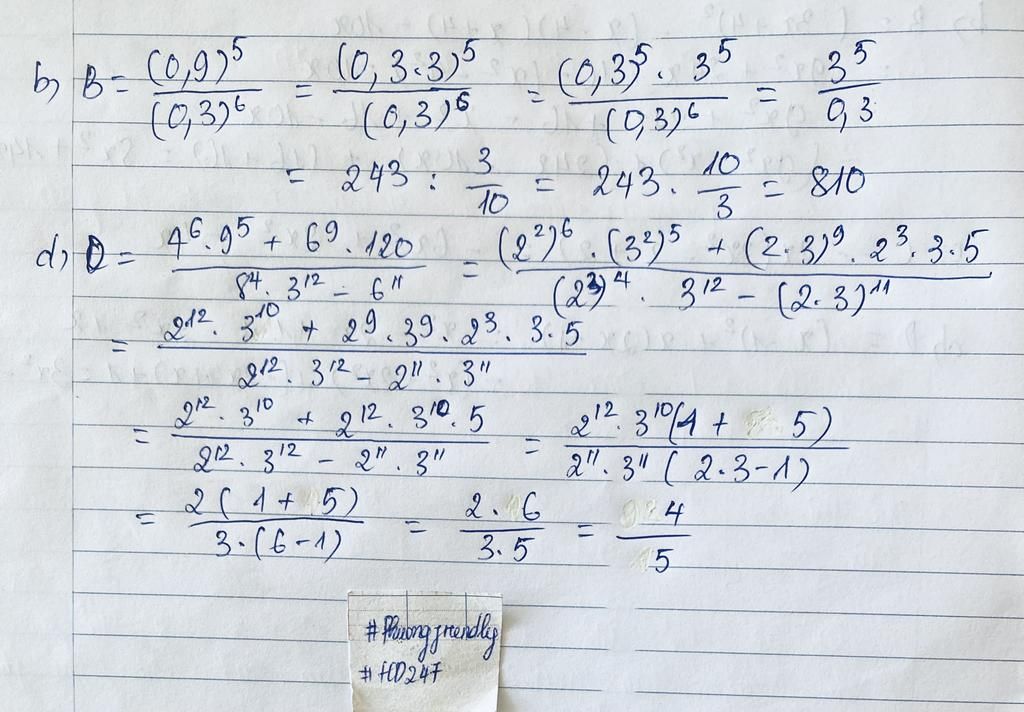 b) B = (0,9)^5 / (0,3)^6 = (0,3.3)^5 / (0,3)^6 = (0,3)^5 . 3^5 / (0,3)^6 = 3^5 / 0,3
= 243 : 3/10 = 243 . 10/3 = 810
d) D = (4^6 . 9^5 + 6^9 . 120) / (8^4 . 3^12 - 6^11) = ((2^2)^6 . (3^2)^5 + (2.3)^9 . 2^3 . 3 . 5) / ((2^3)^4 . 3^12 - (2.3)^11)
= (2^12 . 3^10 + 2^9 . 3^9 . 2^3 . 3 . 5) / (2^12 . 3^12 - 2^11 . 3^11)
= (2^12 . 3^10 + 2^12 . 3^10 . 5) / (2^12 . 3^12 - 2^11 . 3^11) = 2^12 . 3^10 (1 + 5) / 2^11 . 3^11 (2.3-1)
= 2(1 + 5) / 3.(6-1) = 2.6 / 3.5 = 4/5
#Phuongfriendly
#HD247